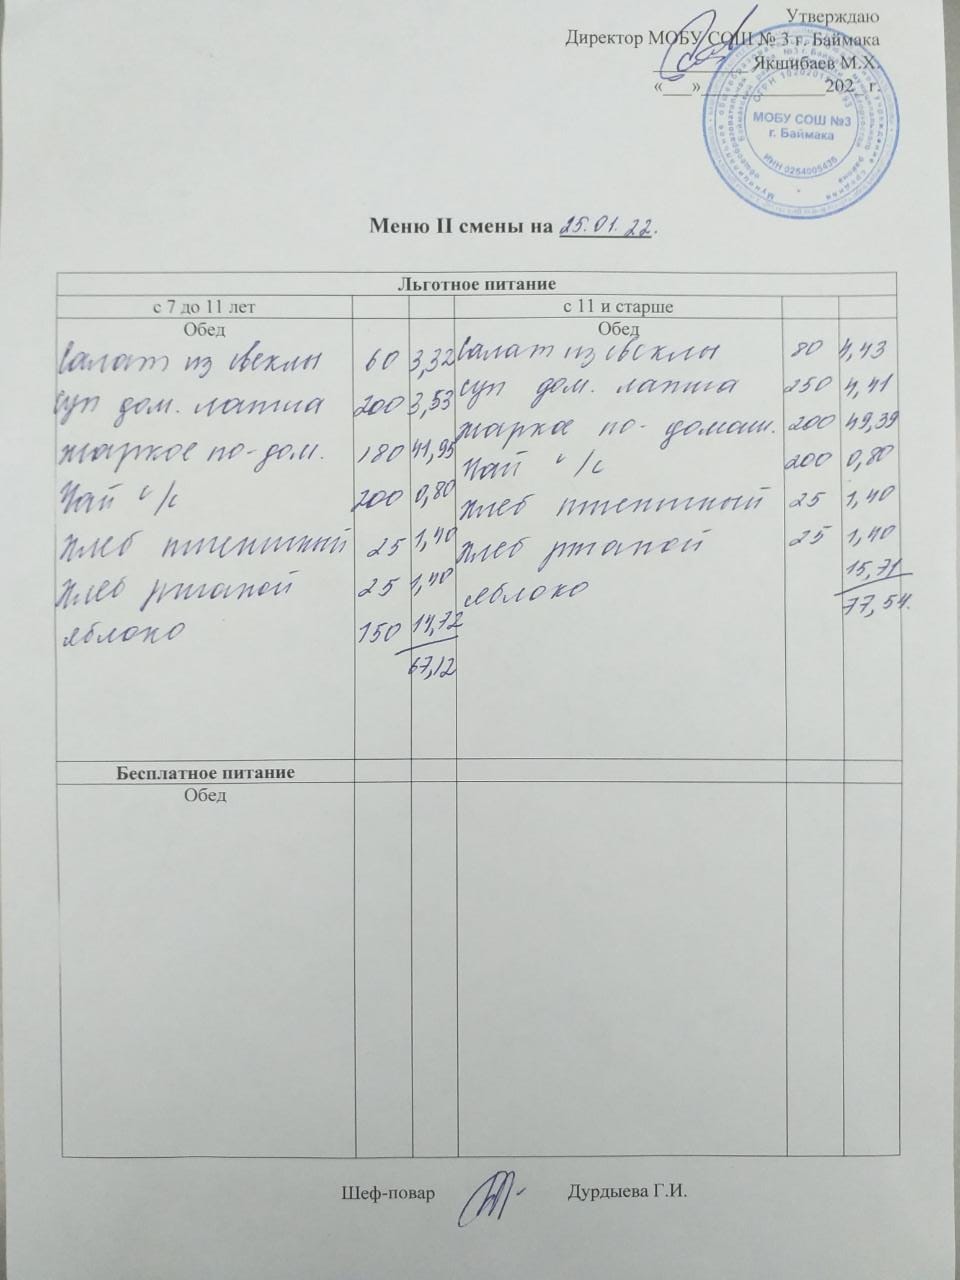 Утверждаю
Директор МОБУ СОШ № 3 г. Баймака
__________ Якшибаев М.Х.
«___»_____________202__г.
МОБУ СОШ №3
г. Баймака
ИНН 0254005435
Меню II смены на 25.01.22.
Льготное питание
с 7 до 11 лет с 11 и старше
Обед Обед
Салат из свеклы 60 3,32 Салат из свеклы 80 4,43
Суп дом. лапша 200 3,53 Суп дом. лапша 250 4,41
Жаркое по-дом. 180 41,95 Жаркое по-домаш. 200 49,39
Чай с/с 200 0,80 Чай с/с 200 0,80
Хлеб пшеничный 25 1,40 Хлеб пшеничный 25 1,40
Хлеб ржаной 25 1,40 Хлеб ржаной 25 1,40
яблоко 150 14,72 яблоко 15,71
67,12 77,54.
Бесплатное питание
Обед
Шеф-повар Дурдыева Г.И.